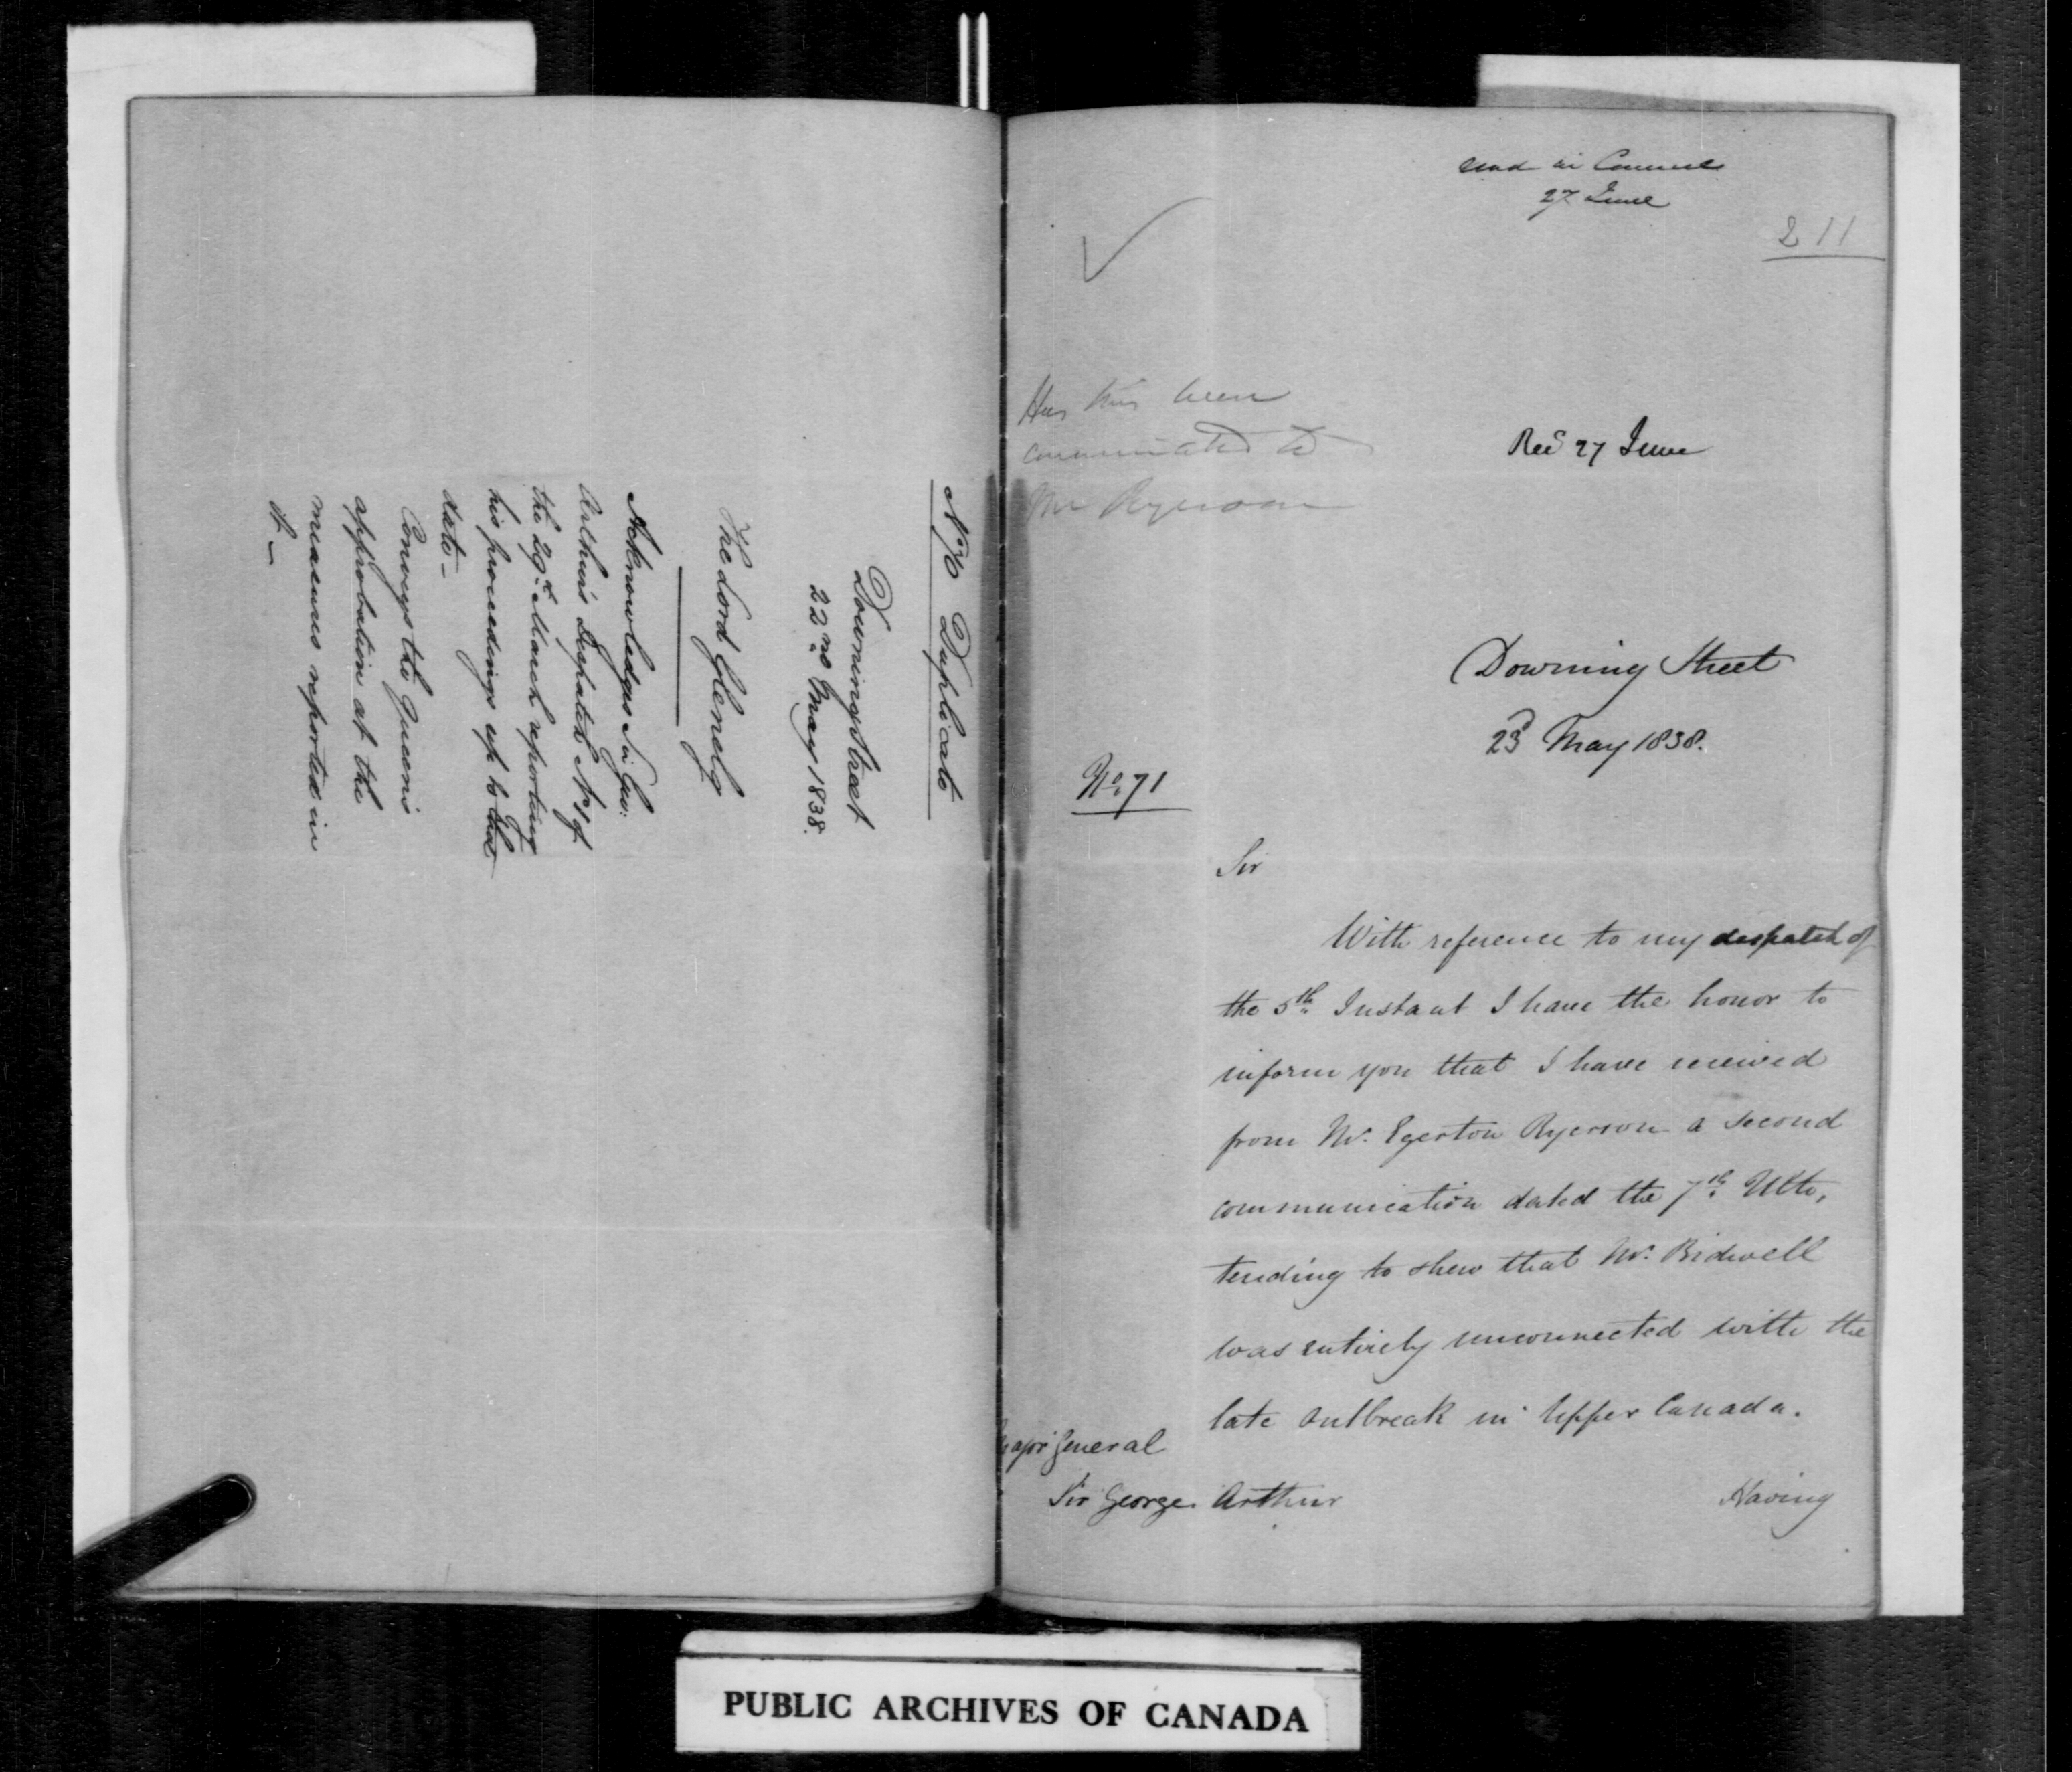 No 70 Duplicate
Downing Street
22nd May 1838.
The Lord Glenelg
Acknowledges Sir Geo:
Arthur's Despatch No 1 of
the 29th March reporting
his proceedings up to that
date—
Conveys the Queen's
approbation of the
measures reported in
it—
read in Council
27 June
211
Has this been
communicated to
Mr Ryerson
Recd 27 June
Downing Street
23d May 1838.
No 71
Sir
With reference to my despatch of
the 5th Instant I have the honor to
inform you that I have received
from Mr. Egerton Ryerson a second
communication dated the 7th Ulto,
tending to shew that Mr. Bidwell
was entirely unconnected with the
late outbreak in Upper Canada.
Major General
Sir George Arthur
Having
PUBLIC ARCHIVES OF CANADA